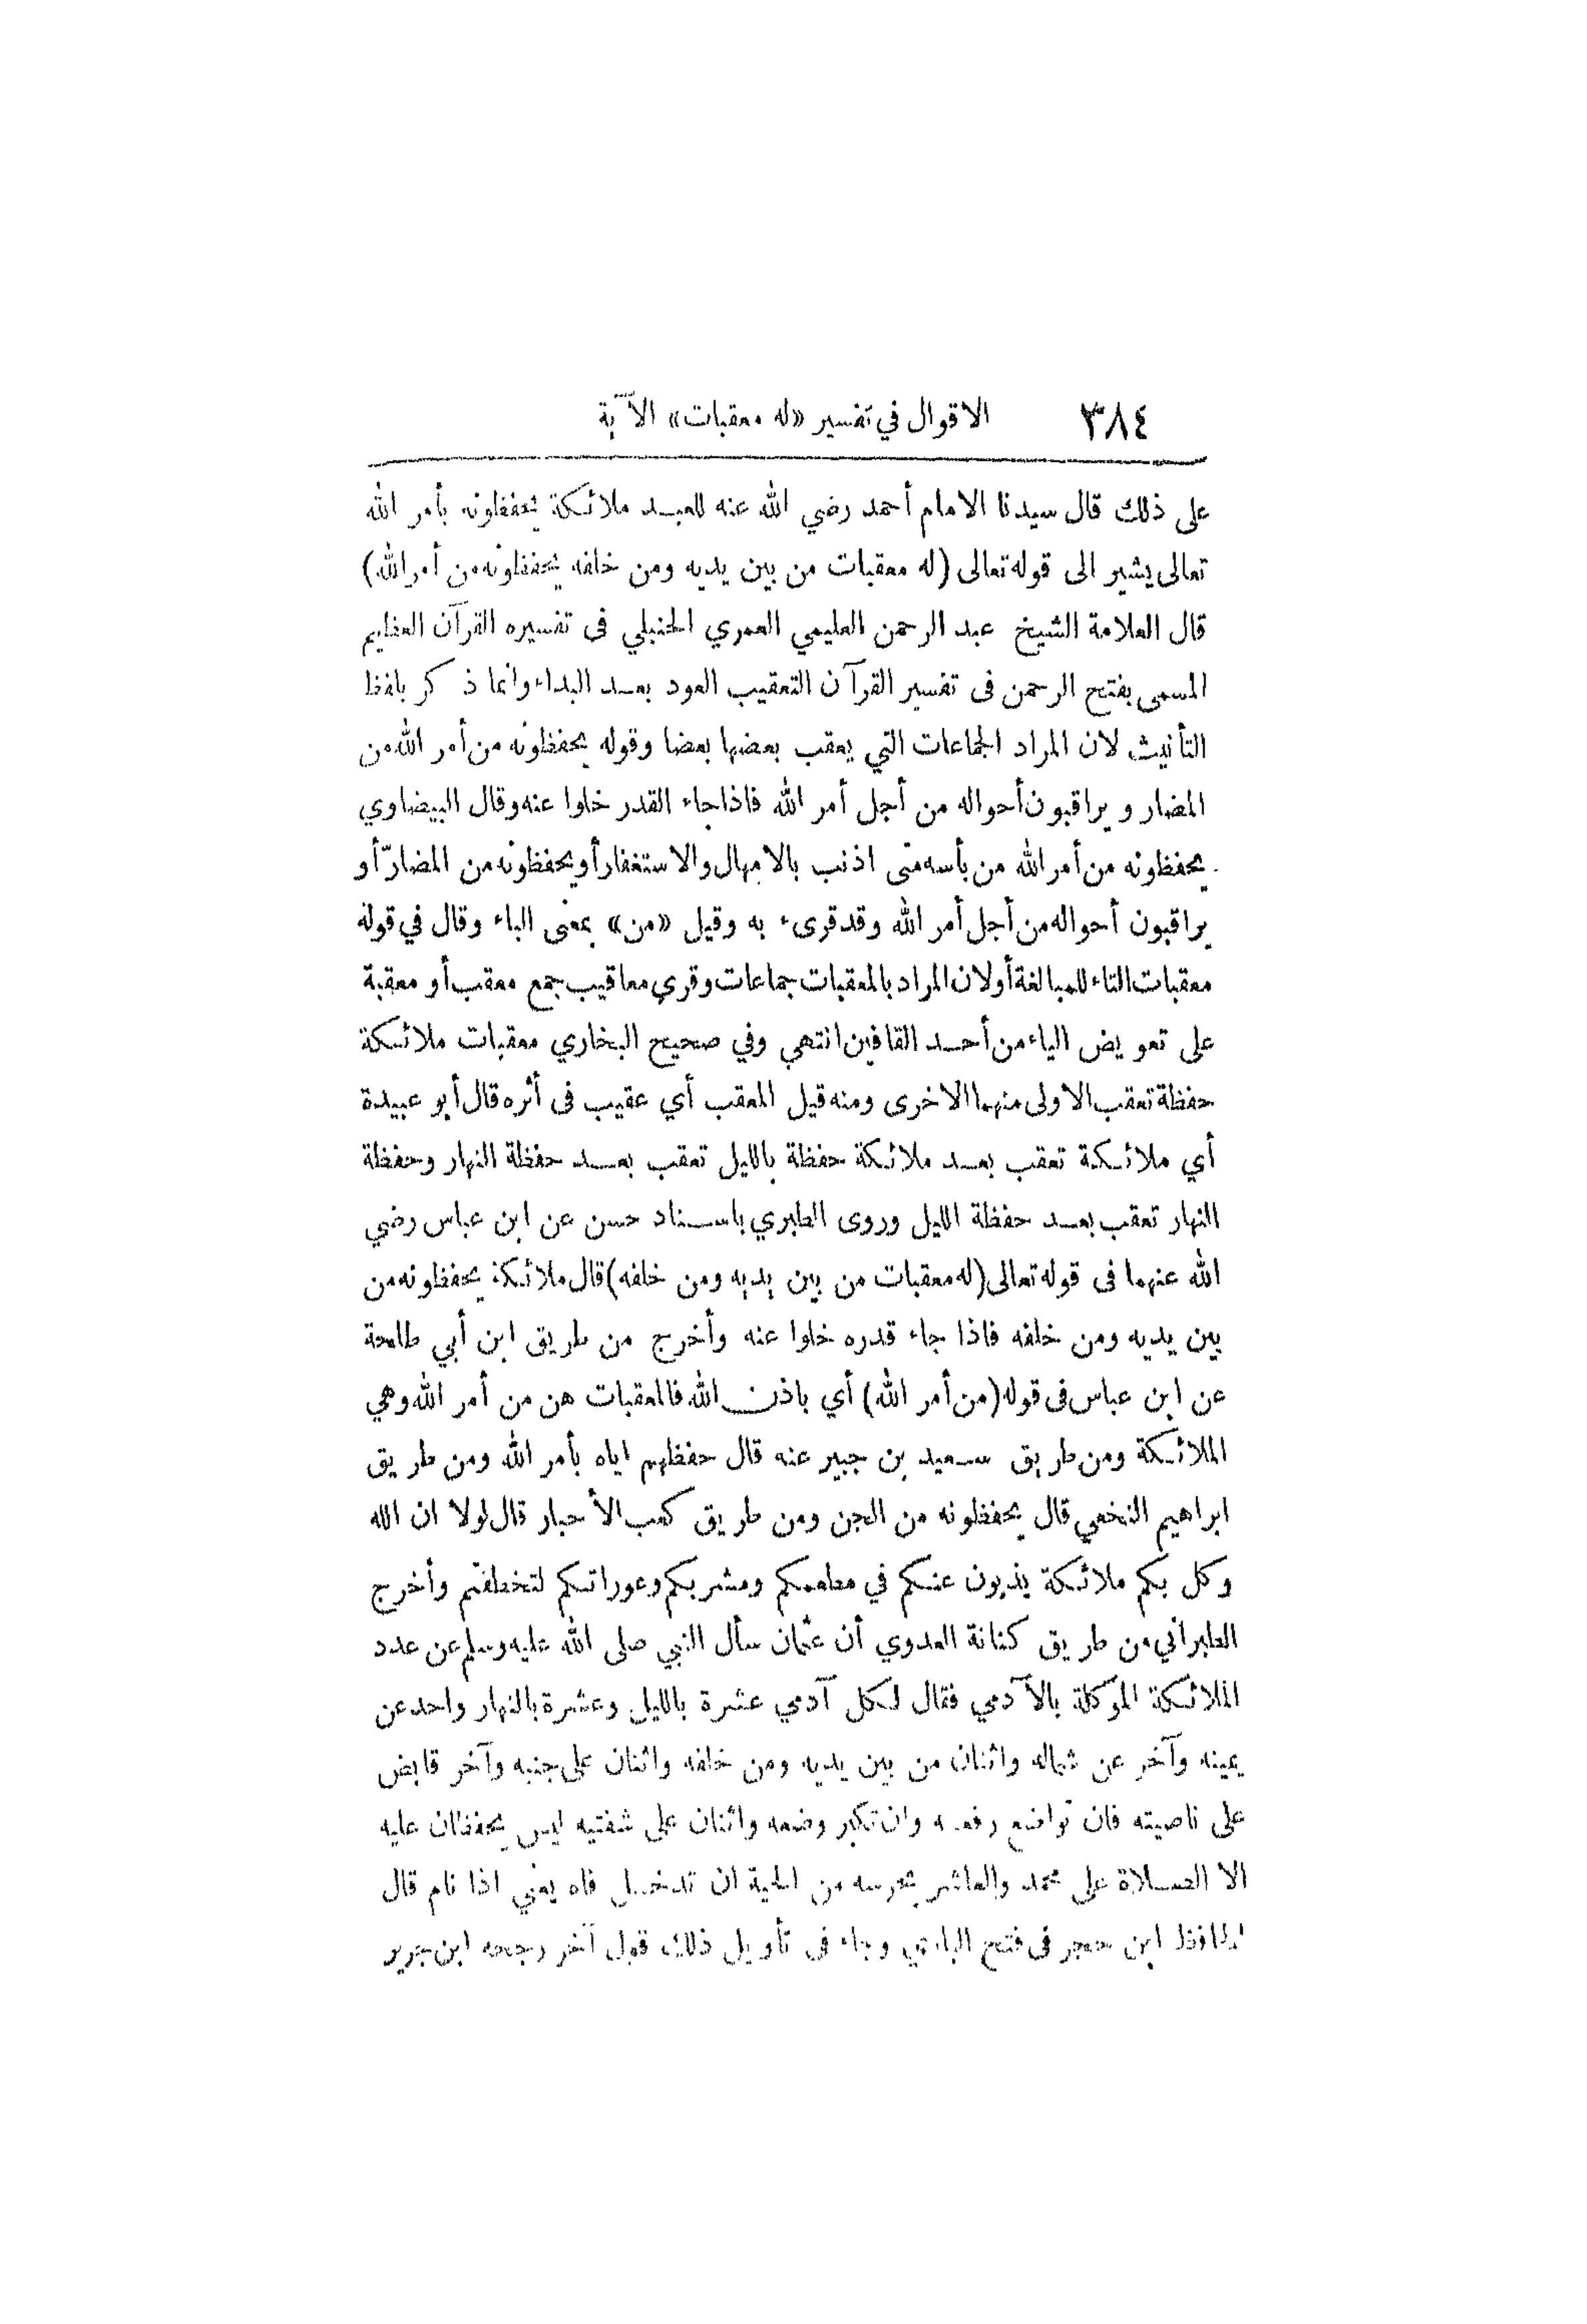 ٣٨٤ الاقوال في تفسير «له معقبات» الآية
على ذلك قال سيدنا الامام أحمد رضي الله عنه للعبد ملائكة يحفظونه بأمر الله
تعالى يشير الى قوله تعالى (له معقبات من بين يديه ومن خلفه يحفظونه من أمر الله)
قال العلامة الشيخ عبد الرحمن العليمي العمري الحنبلي فى تفسيره القرآن العظيم
المسمى بفتح الرحمن فى تفسير القرآن التعقيب العود بعد البداء وانما ذكر بلفظ
التأنيث لان المراد الجماعات التي يعقب بعضها بعضا وقوله يحفظونه من أمر الله من
المضار ويراقبون أحواله من أجل أمر الله فاذا جاء القدر خلوا عنه وقال البيضاوي
يحفظونه من أمر الله من بأسه متى اذنب بالامهال والاستغفار أو يحفظونه من المضارّ أو
يراقبون أحواله من أجل أمر الله وقد قرىء به وقيل «من» بمعنى الباء وقال في قوله
معقبات التاء للمبالغة أو لان المراد بالمعقبات جماعات وقرى معاقيب جمع معقب أو معقبة
على تعويض الياء من أحد القافين انتهى وفي صحيح البخاري معقبات ملائكة
حفظة تعقب الاولى منهما الاخرى ومنه قيل المعقب أي عقيب فى أثره قال أبو عبيدة
أي ملائكة تعقب بعد ملائكة حفظة بالليل تعقب بعد حفظة النهار وحفظة
النهار تعقب بعد حفظة الليل وروى الطبري باسناد حسن عن ابن عباس رضي
الله عنهما فى قوله تعالى (له معقبات من بين يديه ومن خلفه) قال ملائكة يحفظونه من
بين يديه ومن خلفه فاذا جاء قدره خلوا عنه وأخرج من طريق ابن أبي طلحة
عن ابن عباس فى قوله (من أمر الله) أي باذن الله فالمعقبات هن من أمر الله وهي
الملائكة ومن طريق سعيد بن جبير عنه قال حفظهم اياه بأمر الله ومن طريق
ابراهيم النخعي قال يحفظونه من الجن ومن طريق كعب الأحبار قال لولا ان الله
وكل بكم ملائكة يذبون عنكم في مطعمكم ومشربكم وعوراتكم لتخطفتم وأخرج
الطبراني من طريق كنانة العدوي أن عثمان سأل النبي صلى الله عليه وسلم عن عدد
الملائكة الموكلة بالآدمي فقال لكل آدمي عشرة بالليل وعشرة بالنهار واحد عن
يمينه وآخر عن شماله واثنان من بين يديه ومن خلفه واثنان على جنبيه وآخر قابض
على ناصيته فان تواضع رفعه وان تكبر وضعه واثنان على شفتيه ليس يحفظان عليه
الا الصلاة على محمد والعاشر يحرسه من الحية ان تدخل فاه يعني اذا نام قال
الحافظ ابن حجر فى فتح الباري وجاء فى تأويل ذلك قول آخر رجحه ابن جرير